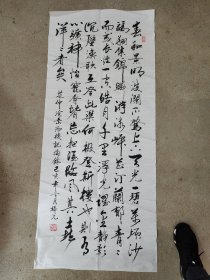 春和景明波瀾不驚上下天光一碧萬頃沙
鷗翔集錦鱗游泳岸芷汀蘭郁々青々
而或長煙一空皓月千里浮光躍金靜影
沉璧漁歌互答此樂何極登斯樓也則有
心曠神怡寵辱皆忘把酒臨風其喜
洋々者矣
范仲淹岳陽樓記